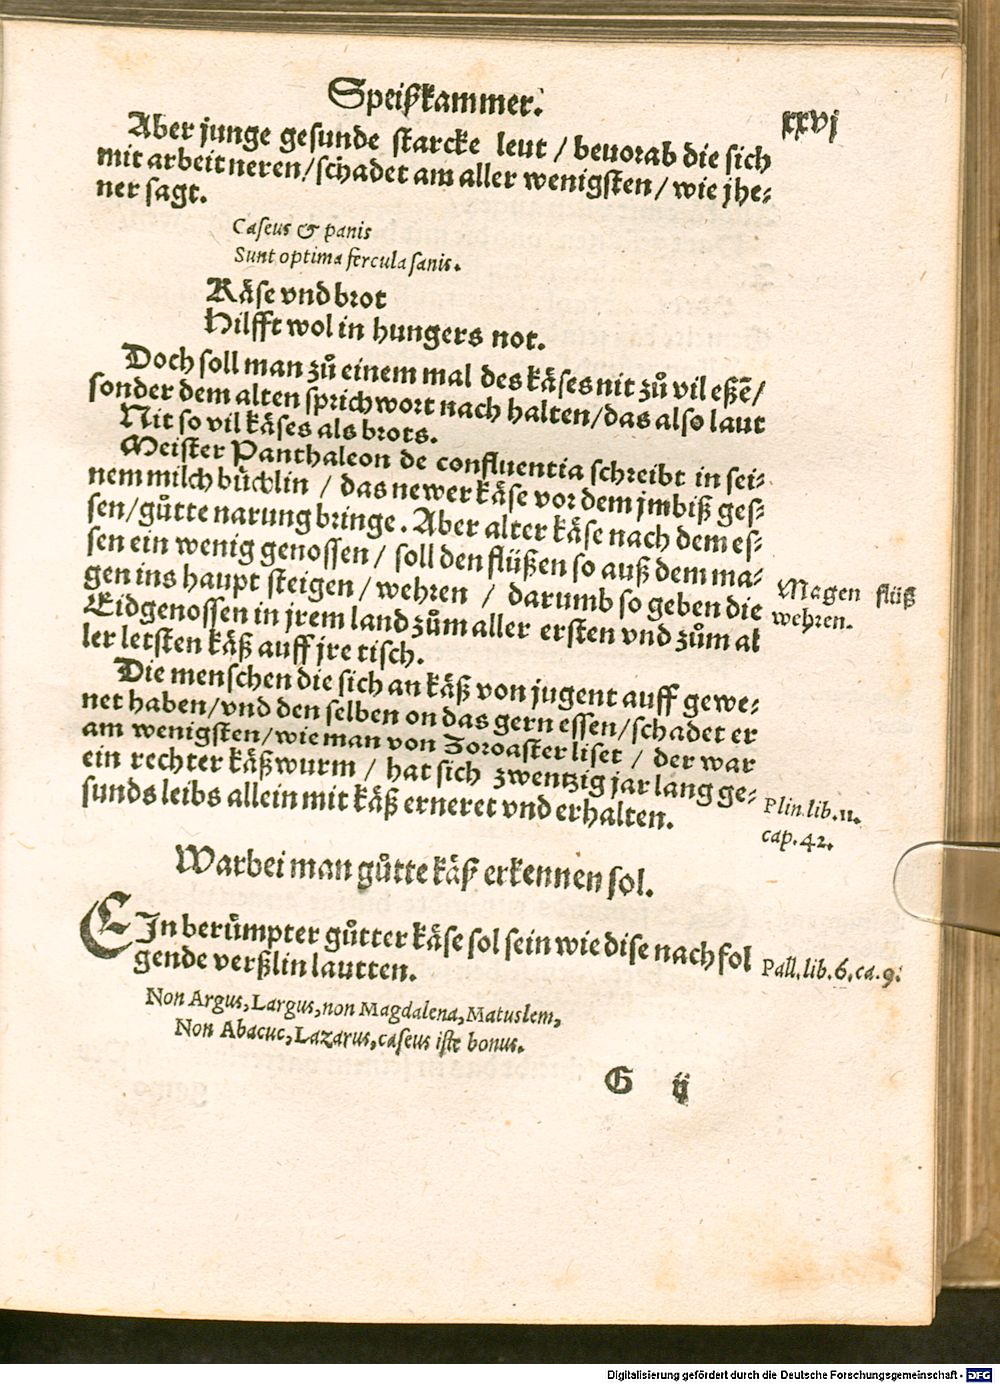 Speißkammer.
xxvj
Aber junge gesunde starcke leut / beuorab die sich
mit arbeit neren / schadet am aller wenigsten / wie jhe⸗
ner sagt.
Caseus & panis
Sunt optima fercula sanis.
Käse vnd brot
Hilfft wol in hungers not.
Doch soll man zů einem mal des käses nit zů vil eßē /
sonder dem alten sprichwort nach halten / das also laut
Nit so vil käses als brots.
Meister Panthaleon de confluentia schreibt in sei⸗
nem milch bůchlin / das newer käse vor dem jmbiß ges⸗
sen / gůtte narung bringe. Aber alter käse nach dem es⸗
sen ein wenig genossen / soll den flüßen so auß dem ma⸗
gen ins haupt steigen / wehren / darumb so geben die
Eidgenossen in jrem land zům aller ersten vnd zům al
ler letsten käß auff jre tisch.
Magen flüß
wehren.
Die menschen die sich an käß von jugent auff gewe⸗
net haben / vnd den selben on das gern essen / schadet er
am wenigsten / wie man von Zoroaster liset / der war
ein rechter käßwurm / hat sich zwentzig jar lang ge⸗
sunds leibs allein mit käß erneret vnd erhalten.
Plin. lib. 11.
cap. 42.
Warbei man gůtte käß erkennen sol.
EJn berümpter gůtter käse sol sein wie dise nachfol
gende verßlin lautten.
Pall. lib. 6. ca. 9.
Non Argus, Largus, non Magdalena, Matuslem,
Non Abacuc, Lazarus, caseus iste bonus.
G ij
Digitalisierung gefördert durch die Deutsche Forschungsgemeinschaft - DFG